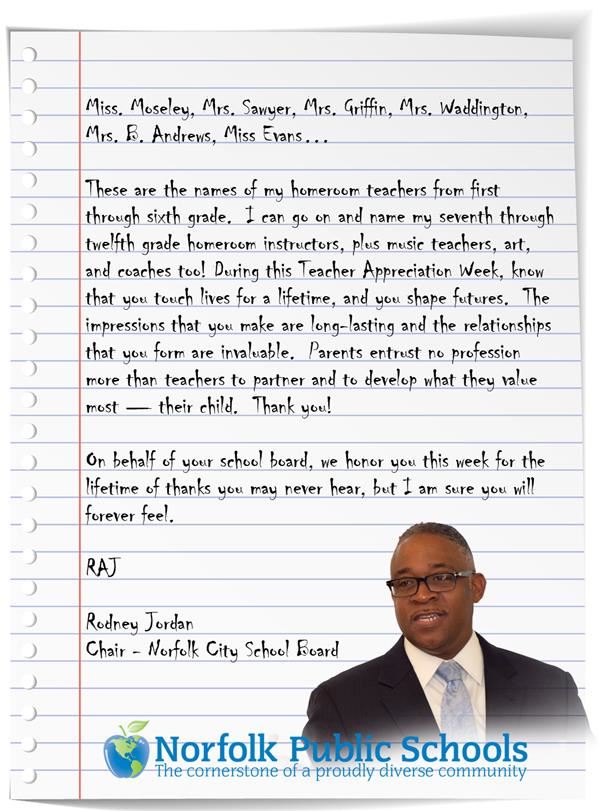 Miss. Moseley, Mrs. Sawyer, Mrs. Griffin, Mrs. Waddington,
Mrs. B. Andrews, Miss Evans...
These are the names of my homeroom teachers from first
through sixth grade. I can go on and name my seventh through
twelfth grade homeroom instructors, plus music teachers, art,
and coaches too! During this Teacher Appreciation Week, know
that you touch lives for a lifetime, and you shape futures. The
impressions that you make are long-lasting and the relationships
that you form are invaluable. Parents entrust no profession
more than teachers to partner and to develop what they value
most — their child. Thank you!
On behalf of your school board, we honor you this week for the
lifetime of thanks you may never hear, but I am sure you will
forever feel.
RAJ
Rodney Jordan
Chair - Norfolk City School Board
Norfolk Public Schools
The cornerstone of a proudly diverse community